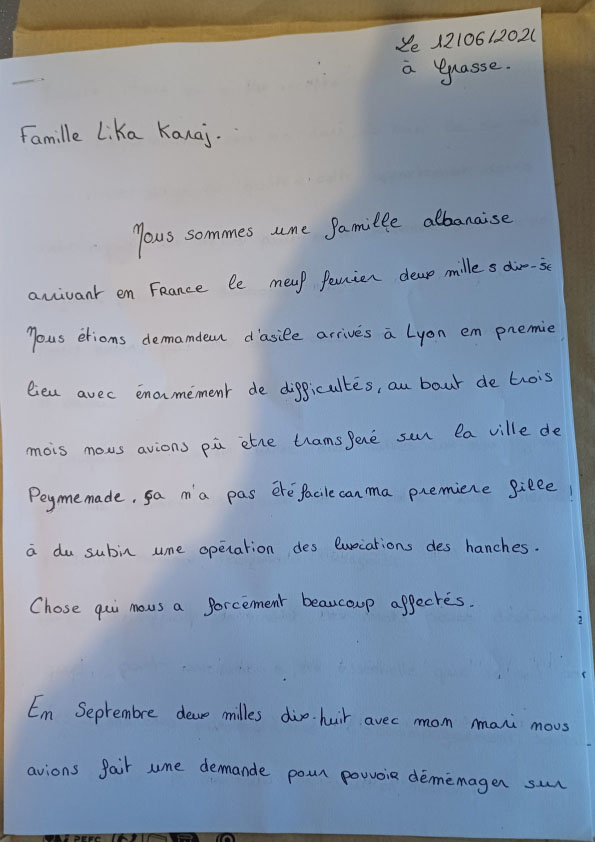 Le 12/06/2021
à Grasse.
Famille Lika Karaj.
Nous sommes une famille albanaise
arrivant en France le neuf fevrier deux milles dix-se
Nous étions demandeur d'asile arrivés à Lyon en premie
lieu avec énormément de difficultés, au bout de trois
mois nous avions pû être transferé sur la ville de
Peymenade, ça n'a pas été facile car ma premiere fille
à du subir une opération des luxations des hanches.
Chose qui nous a forcément beaucoup affectés.
En Septembre deux milles dix-huit avec mon mari nous
avions fait une demande pour pouvoir déménager sur
PEFC